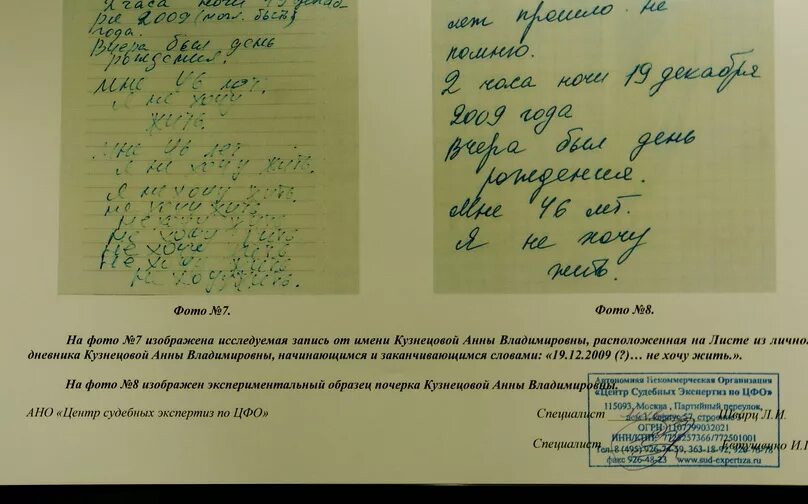 2 часа ночи 19 декаб
ря 2009 (мож. быть)
года.
Вчера был день
рождения.
Мне 46 лет.
Я не хочу
жить.
Мне 46 лет
Я не хочу жить.
Я не хочу жить.
Не хочу жить.
Не хочу жить.
Не хочу жить.
Не хочу жить.
Не хочу жить.
Не хочу жить.
лет прошло не
помню.
2 часа ночи 19 декабря
2009 года
Вчера был день
рождения.
Мне 46 лет.
Я не хочу
жить.
Фото №7.
Фото №8.
На фото №7 изображена исследуемая запись от имени Кузнецовой Анны Владимировны, расположенная на Листе из лично
дневника Кузнецовой Анны Владимировны, начинающимся и заканчивающимся словами: «19.12.2009 (?)… не хочу жить.».
На фото №8 изображен экспериментальный образец почерка Кузнецовой Анны Владимировны.
АНО «Центр судебных экспертиз по ЦФО»
Специалист Шварц Л.И.
Специалист Евтушенко И.
Автономная Некоммерческая Организация
«Центр Судебных Экспертиз по ЦФО»
115093, Москва, Партийный переулок,
дом 1, корпус 57, строение
ОГРН 1107799032021
ИНН/КПП: 772501001
Тел. 8 (495) 363-18-92
факс 926-48-23 www.sud-expertiza.ru